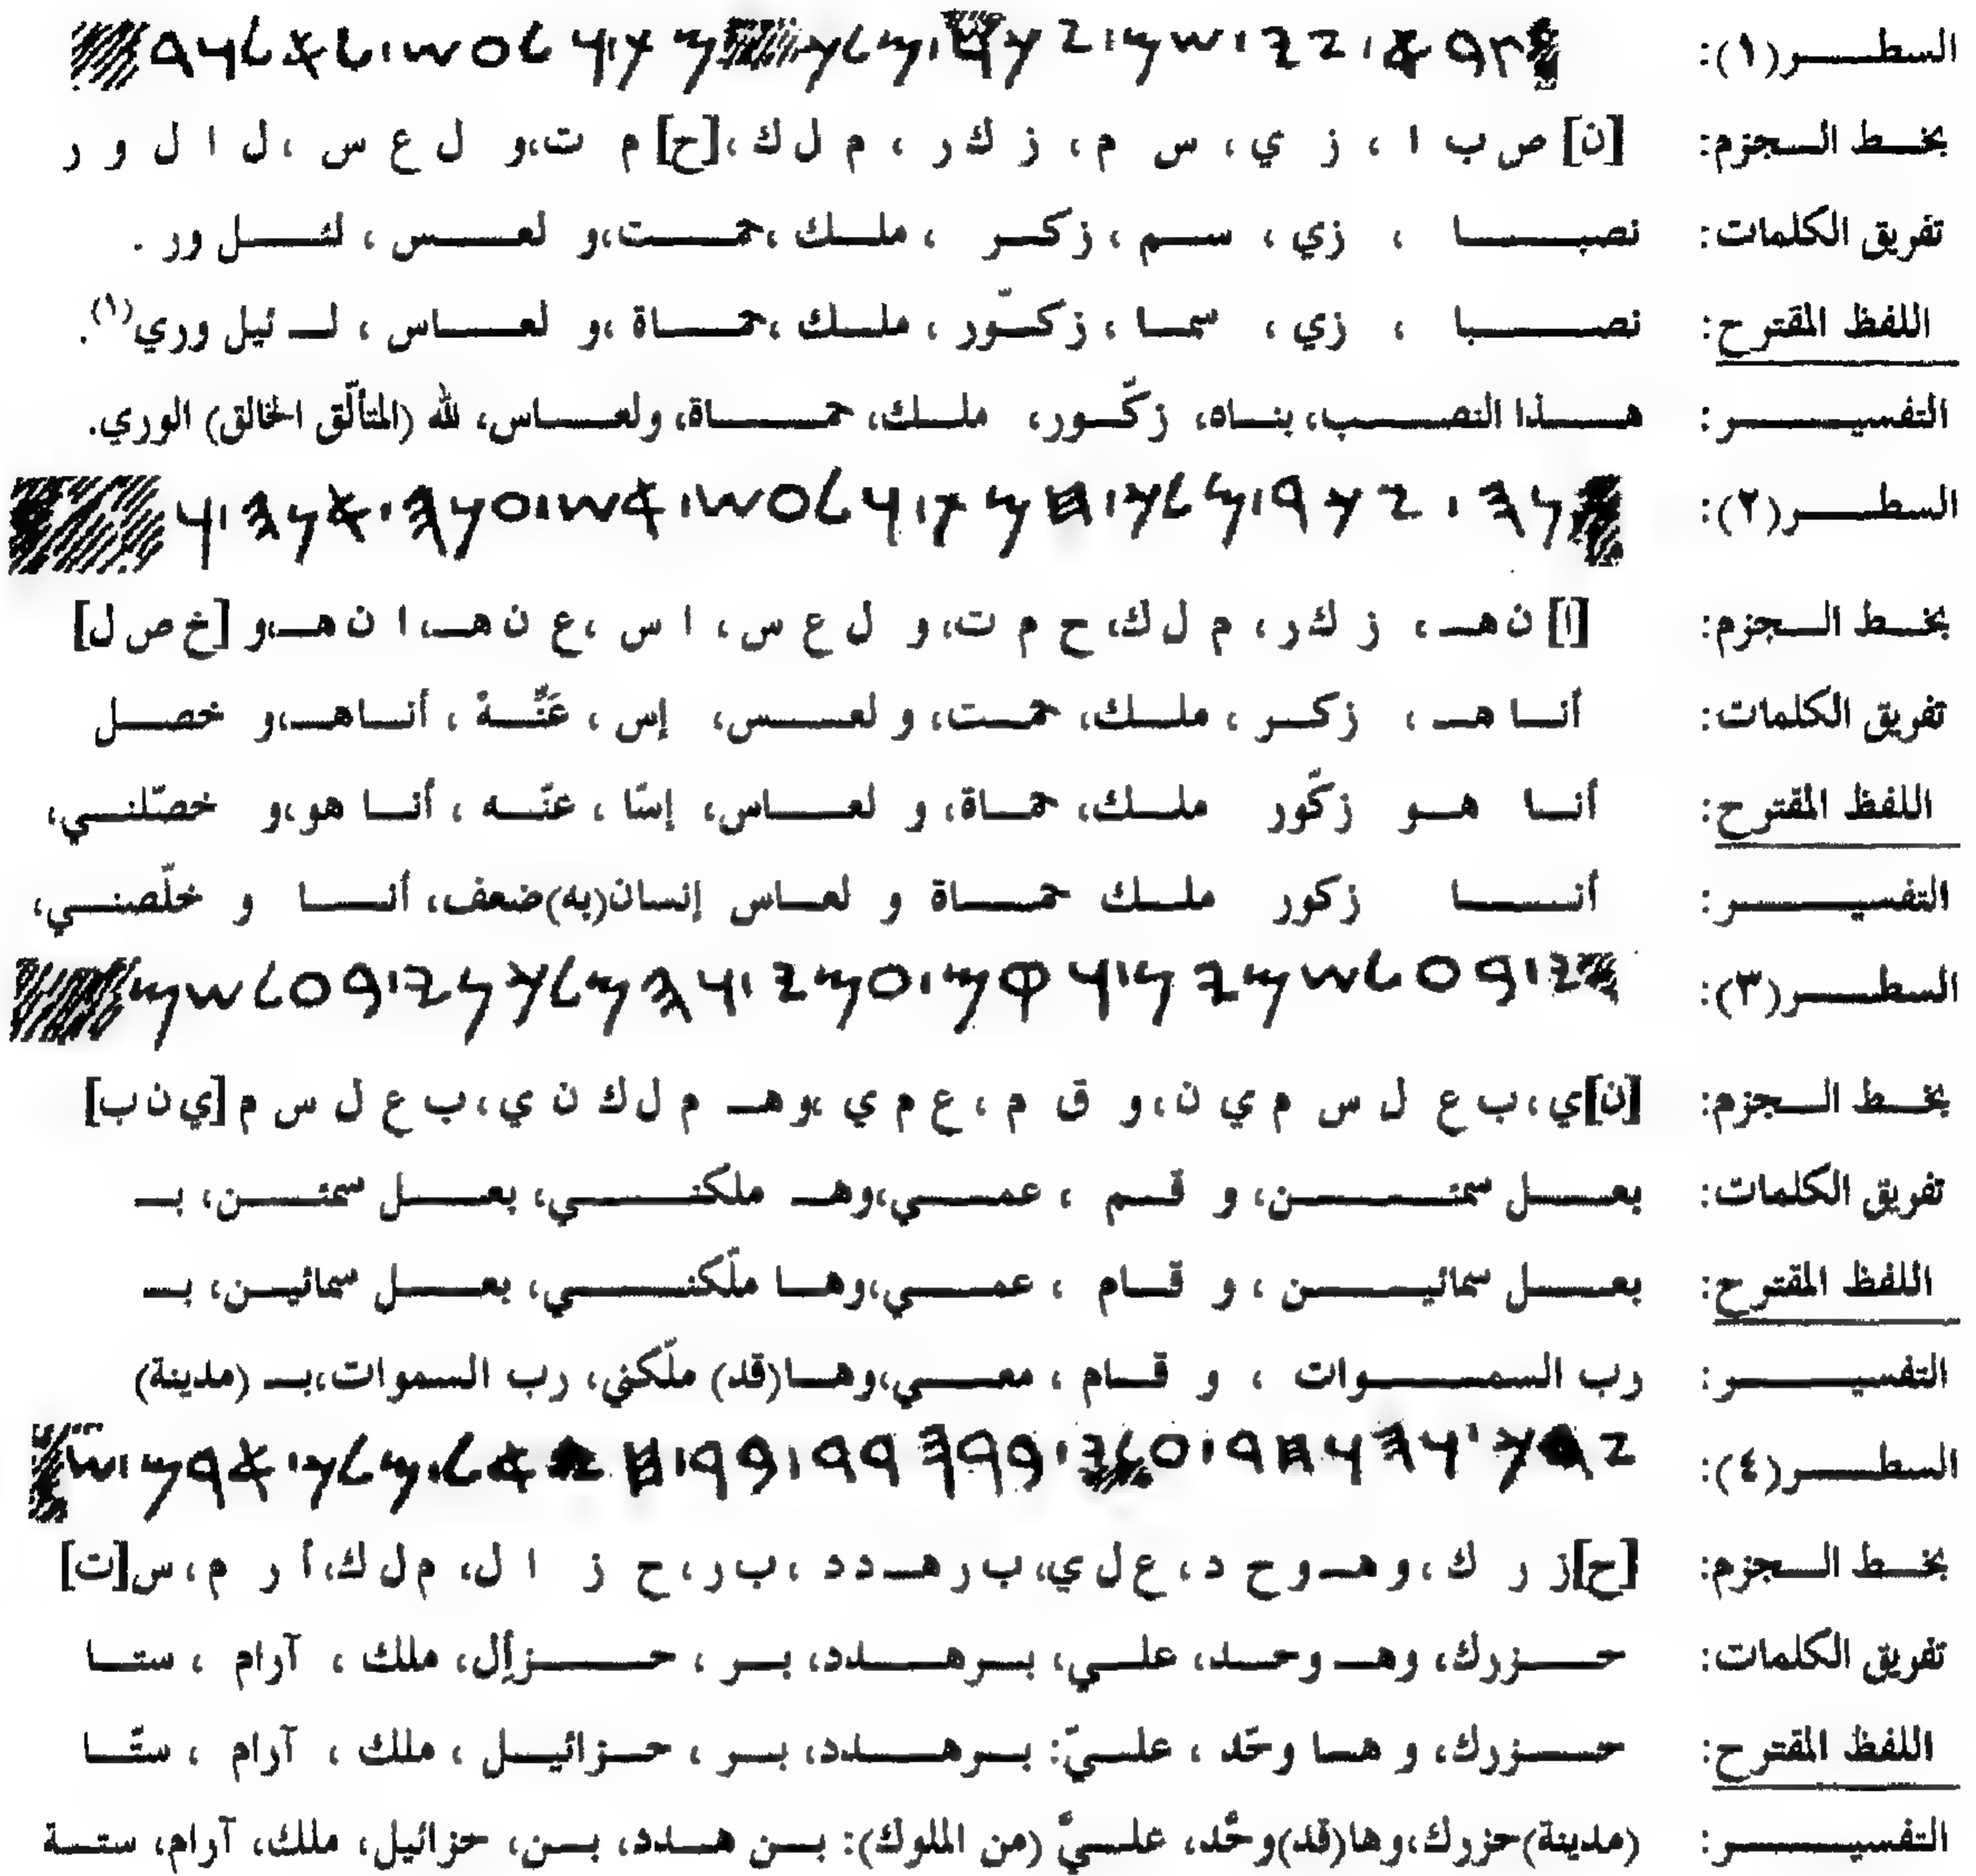 السطر (١): 𐤑𐤁𐤀𐤟𐤆𐤉𐤟𐤔𐤌𐤟𐤆𐤊𐤓𐤟𐤌𐤋𐤊 𐤌𐤕𐤟𐤅𐤋𐤏𐤔𐤟𐤋𐤀𐤋𐤅𐤓
بخط الجزم: [ن] ص ب ا ، ز ي ، س م، ز ك ر ، م ل ك،[ح] م ت،و ل ع س ،ل ا ل و ر
تفريق الكلمات: نصبا ، زي ، سم ، زكر ، ملك ،حمت،و لعس ، لئل ور .
اللفظ المقترح: نصبا ، زي ، سما ، زكّور ، ملك ،حماة ،و لعاس ، لـ ئيل وري(١).
التفسير: هذا النصب، بناه، زكّور، ملك، حماة، ولعاس، لله (المتألّق الخالق) الوري.
السطر (٢): 𐤍𐤄𐤟𐤆𐤊𐤓𐤟𐤌𐤋𐤊𐤟𐤇𐤌𐤕𐤟𐤅𐤋𐤏𐤔𐤟𐤀𐤔𐤟𐤏𐤍𐤄𐤟𐤀𐤍𐤄𐤟𐤅
بخط الجزم: [ا] ن هـ ، ز ك ر ، م ل ك، ح م ت،و ل ع س، ا س ،ع ن هـ،ا ن هـ،و [خ ص ل]
تفريق الكلمات: أنا هـ ، زكر ، ملك، حمت، و لعس، إس ، عَنَّهْ ، أناهـ،و خصل
اللفظ المقترح: أنا هو زكّور ملك، حماة، و لعاس، إسّا ، عنّه ، أنا هو،و خصّلني،
التفسير: أنا زكور ملك حماة و لعاس إنسان(به)ضعف، أنا و خلّصني،
السطر (٣): 𐤉𐤟𐤁𐤏𐤋𐤔𐤌𐤉𐤍𐤟𐤅𐤒𐤌𐤟𐤏𐤌𐤉𐤟𐤅𐤄𐤌𐤋𐤊𐤍𐤉𐤟𐤁𐤏𐤋𐤔𐤌
بخط الجزم: [ن]ي،ب ع ل س م ي ن،و ق م ،ع م ي ،وهـ م ل ك ن ي،ب ع ل س م [ي ن ب]
تفريق الكلمات: بعل سمئن، و قم ، عمي،وهـ ملكني، بعل سمئن، بـ
اللفظ المقترح: بعل سمائين ، و قام ، عمي،وها ملّكني، بعل سمائين، بـ
التفسير: رب السموات ، و قام ، معي،وها(قد) ملّكني، رب السموات،بـ (مدينة)
السطر (٤): 𐤆𐤓𐤊𐤟𐤅𐤄𐤅𐤇𐤃𐤟𐤏𐤋𐤉𐤟𐤁𐤓𐤄𐤃𐤃𐤟𐤁𐤓𐤟𐤇𐤆𐤀𐤋𐤟𐤌𐤋𐤊𐤟𐤀𐤓𐤌𐤟𐤔
بخط الجزم: [ح]ز ر ك،وهـ وح د،ع ل ي،ب ر هـ د د ،ب ر،ح ز ا ل، م ل ك،أ ر م ،س[ت]
تفريق الكلمات: حزرك، وهـ وحد، علي، برهدد، بر ، حزإل، ملك ، آرام ، ستا
اللفظ المقترح: حزرك، و ها وحّد ، عليّ: برهدد، بر ، حزائيل ، ملك ، آرام ، ستّا
التفسير: (مدينة)حزرك،وها(قد)وحّد، عليَّ (من الملوك): بن هدد، بن، حزائيل، ملك، آرام، ستة